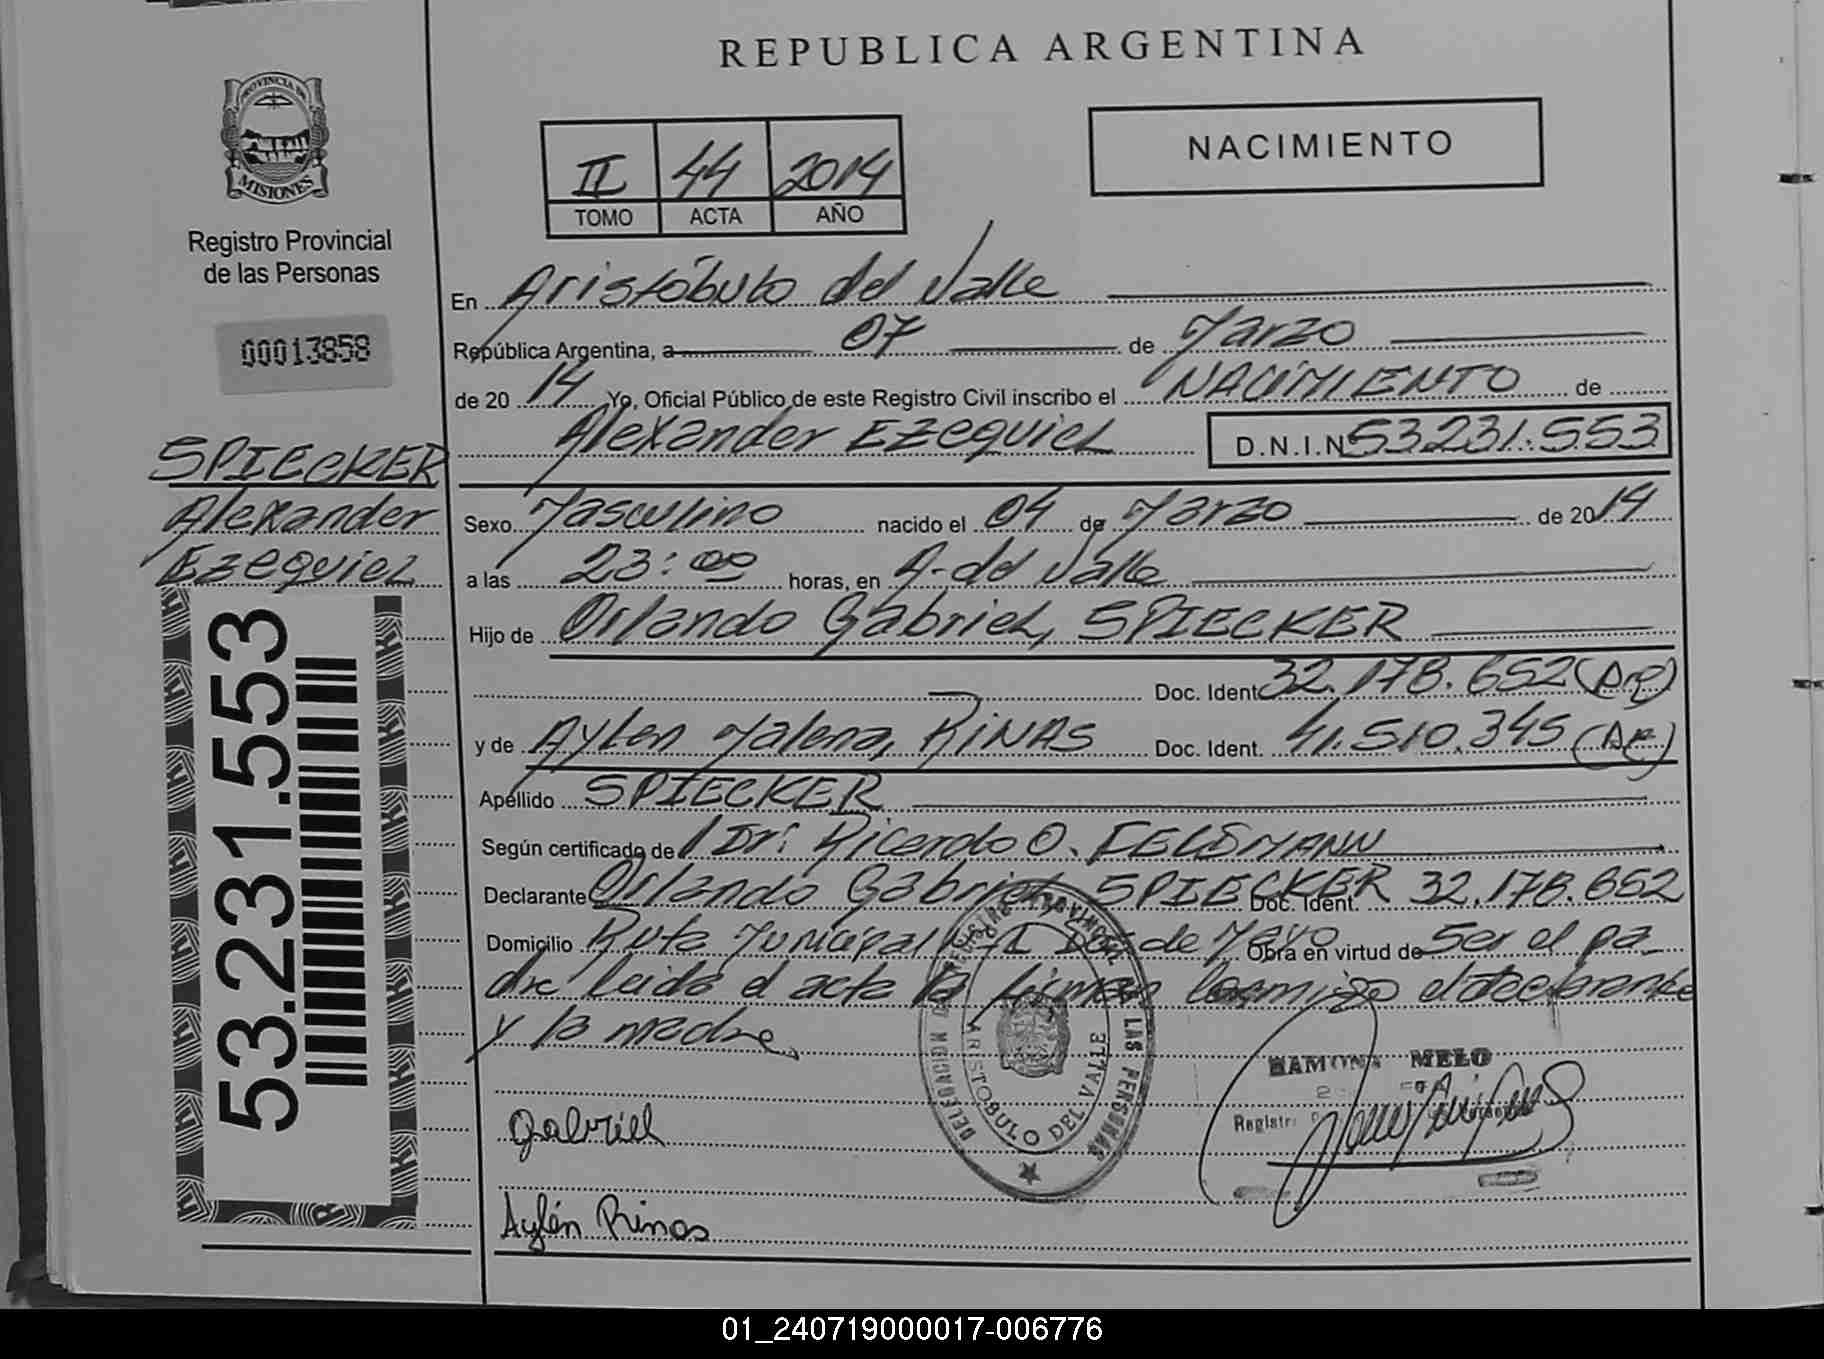 REPUBLICA ARGENTINA
PROVINCIA DE
MISIONES
Registro Provincial
de las Personas
00013858
II 44 2014
TOMO ACTA AÑO
NACIMIENTO
En Aristóbulo del Valle
República Argentina, a 07 de Marzo
de 2014 Yo, Oficial Público de este Registro Civil inscribo el NACIMIENTO de
Alexander EzequieL D.N.I.Nº 53.231.553
SPIECKER
Alexander
EzequieL
Sexo Masculino nacido el 04 de Marzo de 2014
a las 23:00 horas, en A. del Valle
Hijo de Orlando GabrieL, SPIECKER
Doc. Ident. 32.178.652 (AR)
y de Aylen Malena, RiNAS Doc. Ident. 41.510.345 (AR)
Apellido SPIECKER
Según certificado de Dr: Ricardo O. FELDMANN
Declarante Orlando GabrieL SPIECKER Doc. Ident. 32.178.652
Domicilio Ruta Municipal I Dos de Mayo Obra en virtud de Ser el pa
dre leida el acta la firman conmigo el declarante
y la madre
53.231.553
DELEGACION REGISTRO PROVINCIAL DE LAS PERSONAS
ARISTOBULO DEL VALLE
RAMONA MELO
Registro
Gabriel
Aylén Rinas
01_240719000017-006776